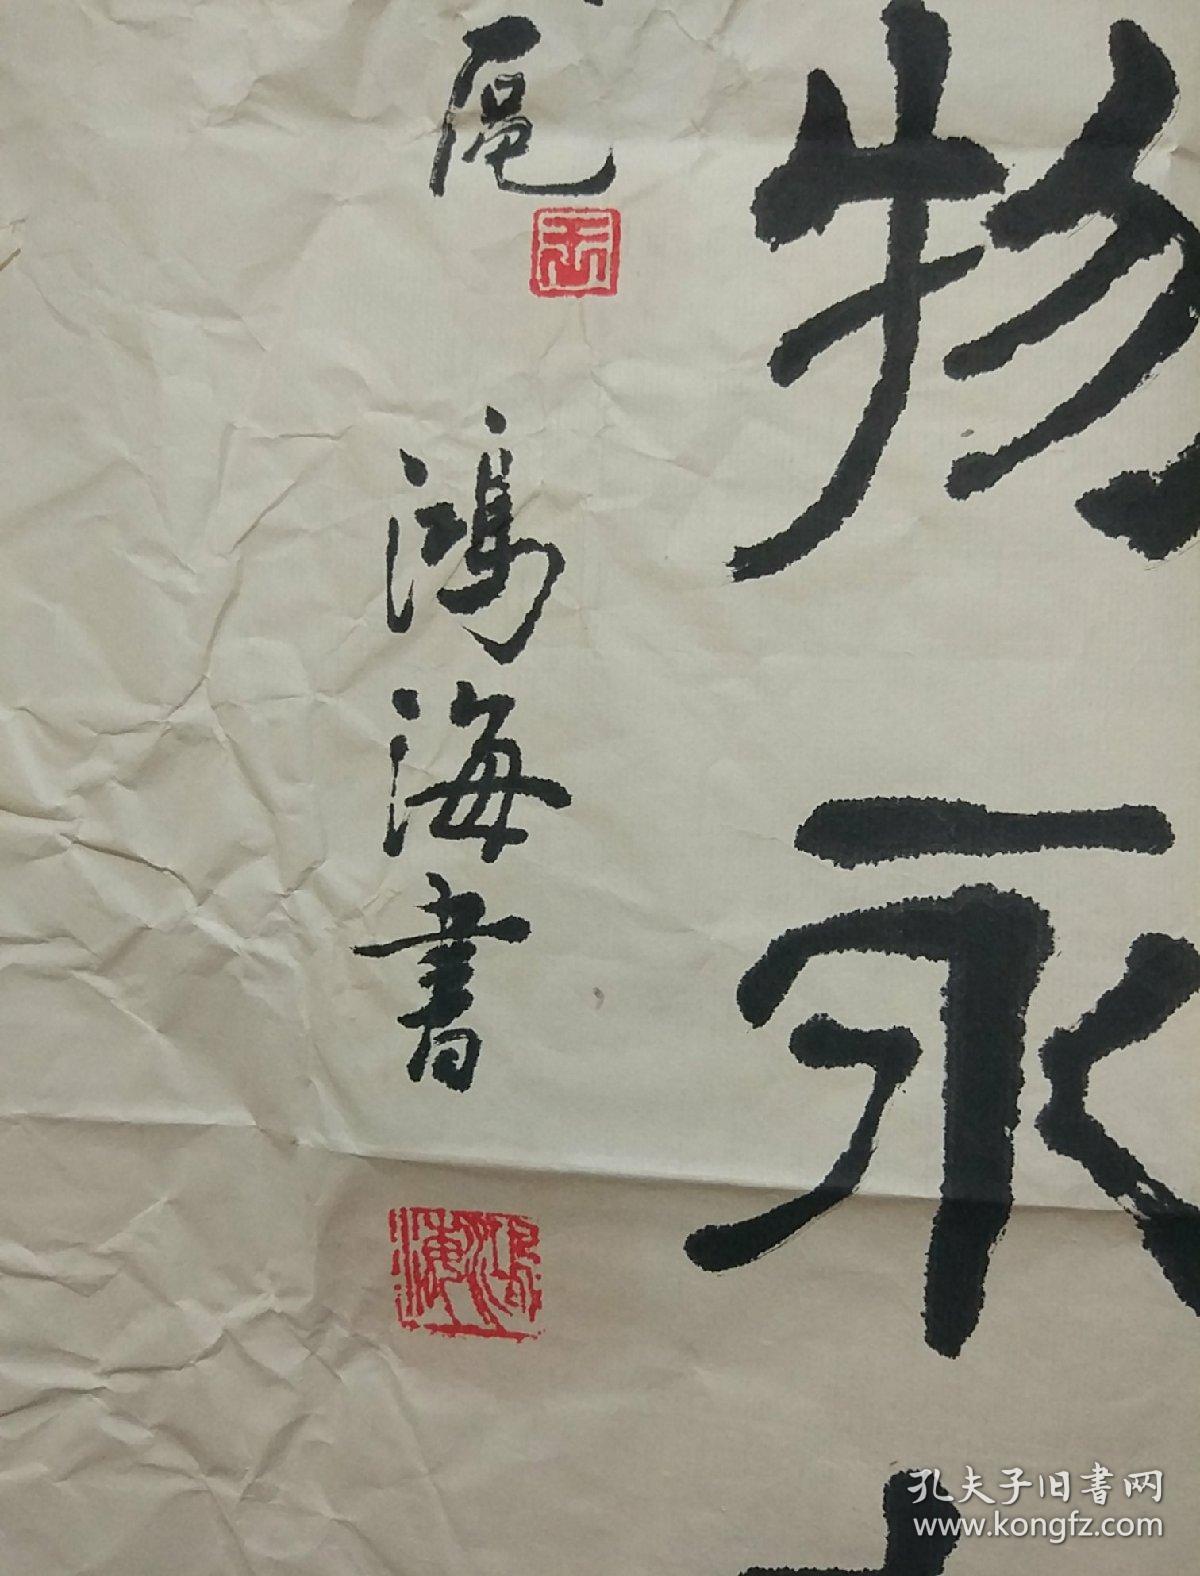 物永
鴻海書
鴻海
孔夫子旧书网
www.kongfz.com